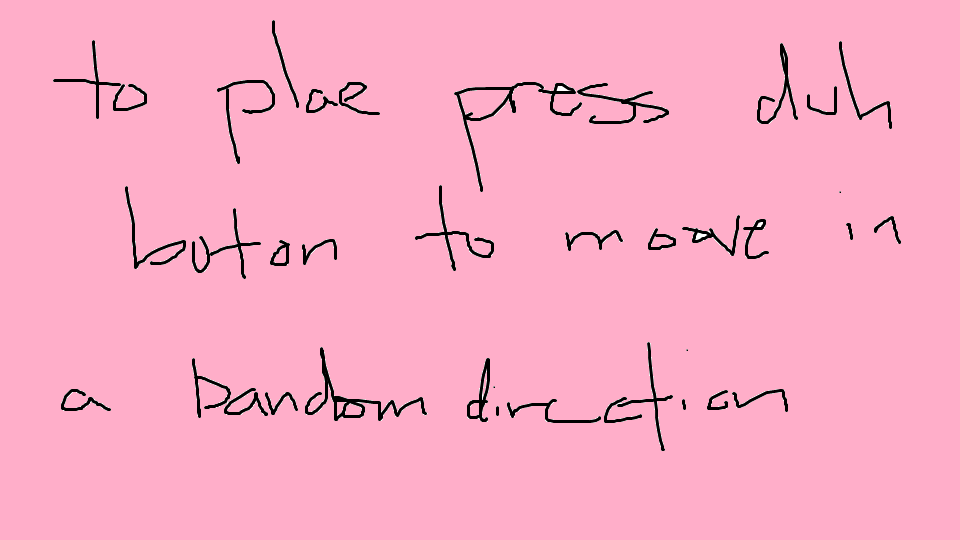 to plae press duh
buton to moove in
a bandom direction